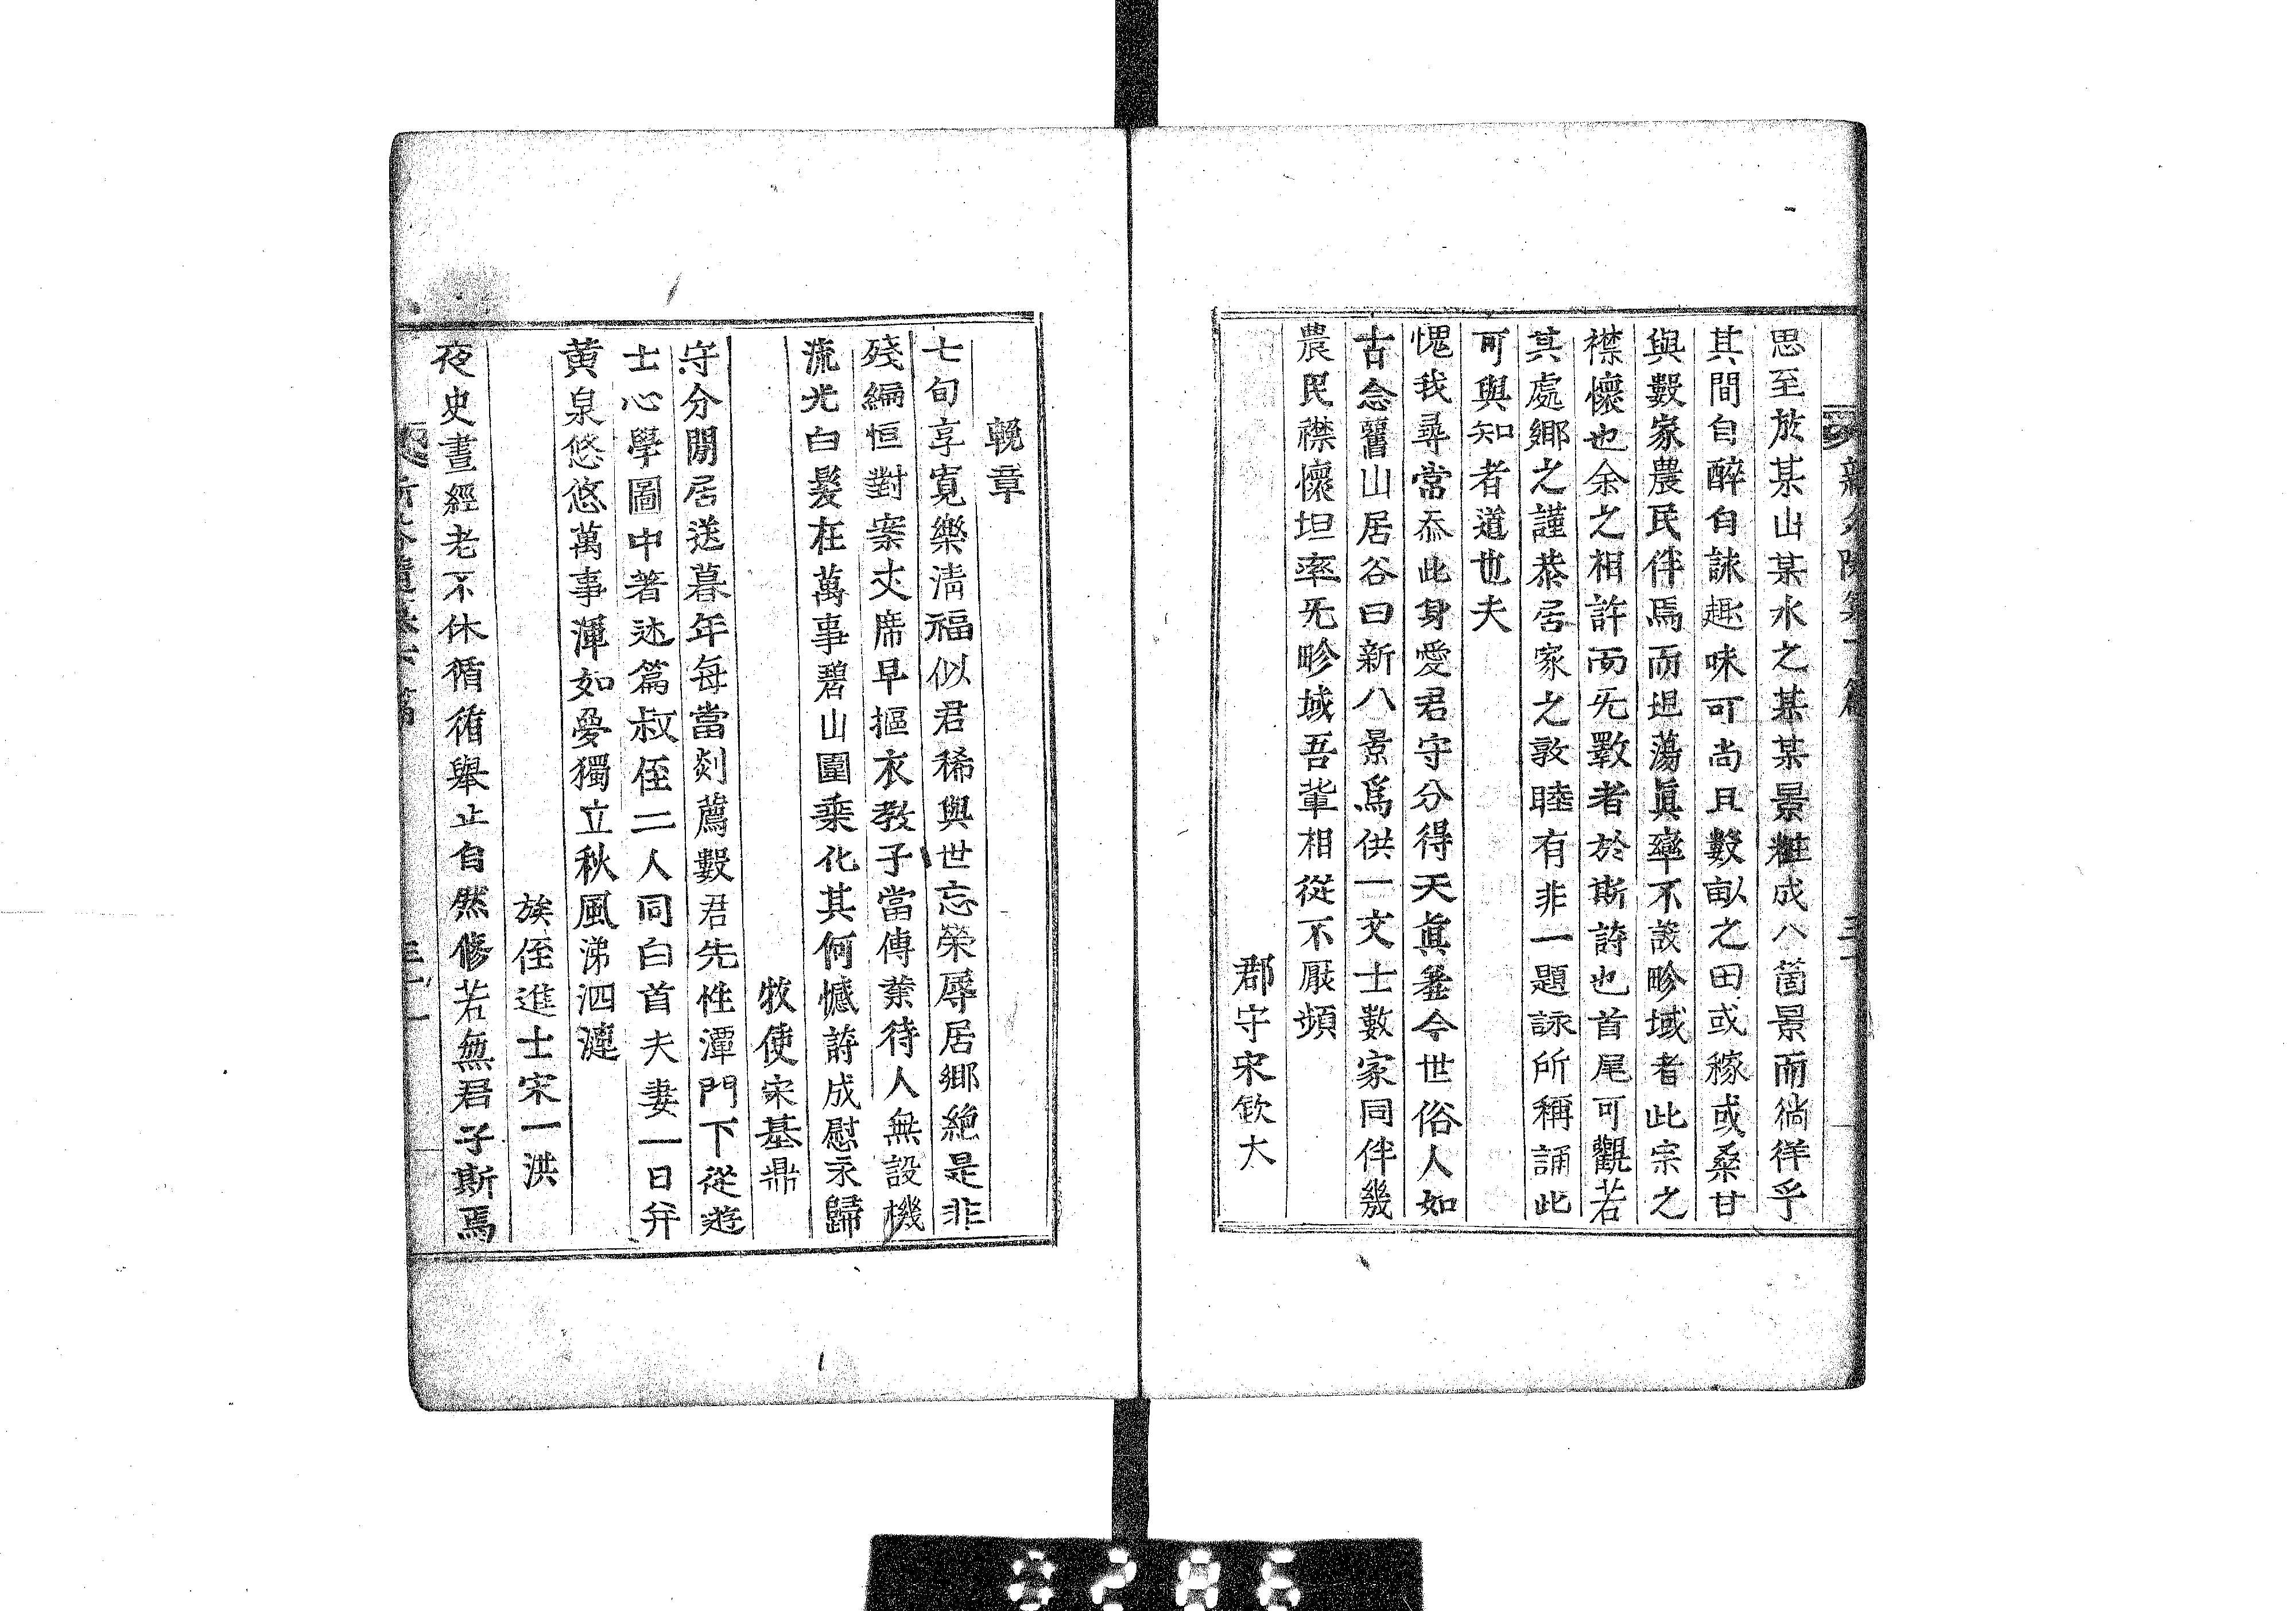 思至於某山某水之某某景粧成八箇景而徜徉乎
其間自醉自詠趣味可尚且數畝之田或稼或桑甘
與數家農民伴焉而坦蕩眞率不設畛域者此宗之
襟懷也余之相許而旡斁者於斯詩也首尾可觀若
其處鄉之謹恭居家之敦睦有非一題詠所稱誦此
可與知者道也夫
愧我尋常忝此身愛君守分得天眞登今世俗人如
古念舊山居谷曰新八景爲供一文士數家同伴幾
農民襟懷坦率旡畛域吾輩相從不厭頻
郡守宋欽大
輓章
七旬享寬樂清福似君稀與世忘榮辱居鄉絶是非
殘編恒對案丈席早摳衣教子當傳業待人無設機
流光白髮在萬事碧山圍乗化其何憾詩成慰永歸
牧使宋基鼎
守分閒居送暮年每當剡薦數君先性潭門下從遊
士心學圖中著述篇叔侄二人同白首夫妻一日弁
黃泉悠悠萬事渾如夢獨立秋風涕泗漣
族侄進士宋一洪
夜史晝經老不休循循舉止自然修若無君子斯焉